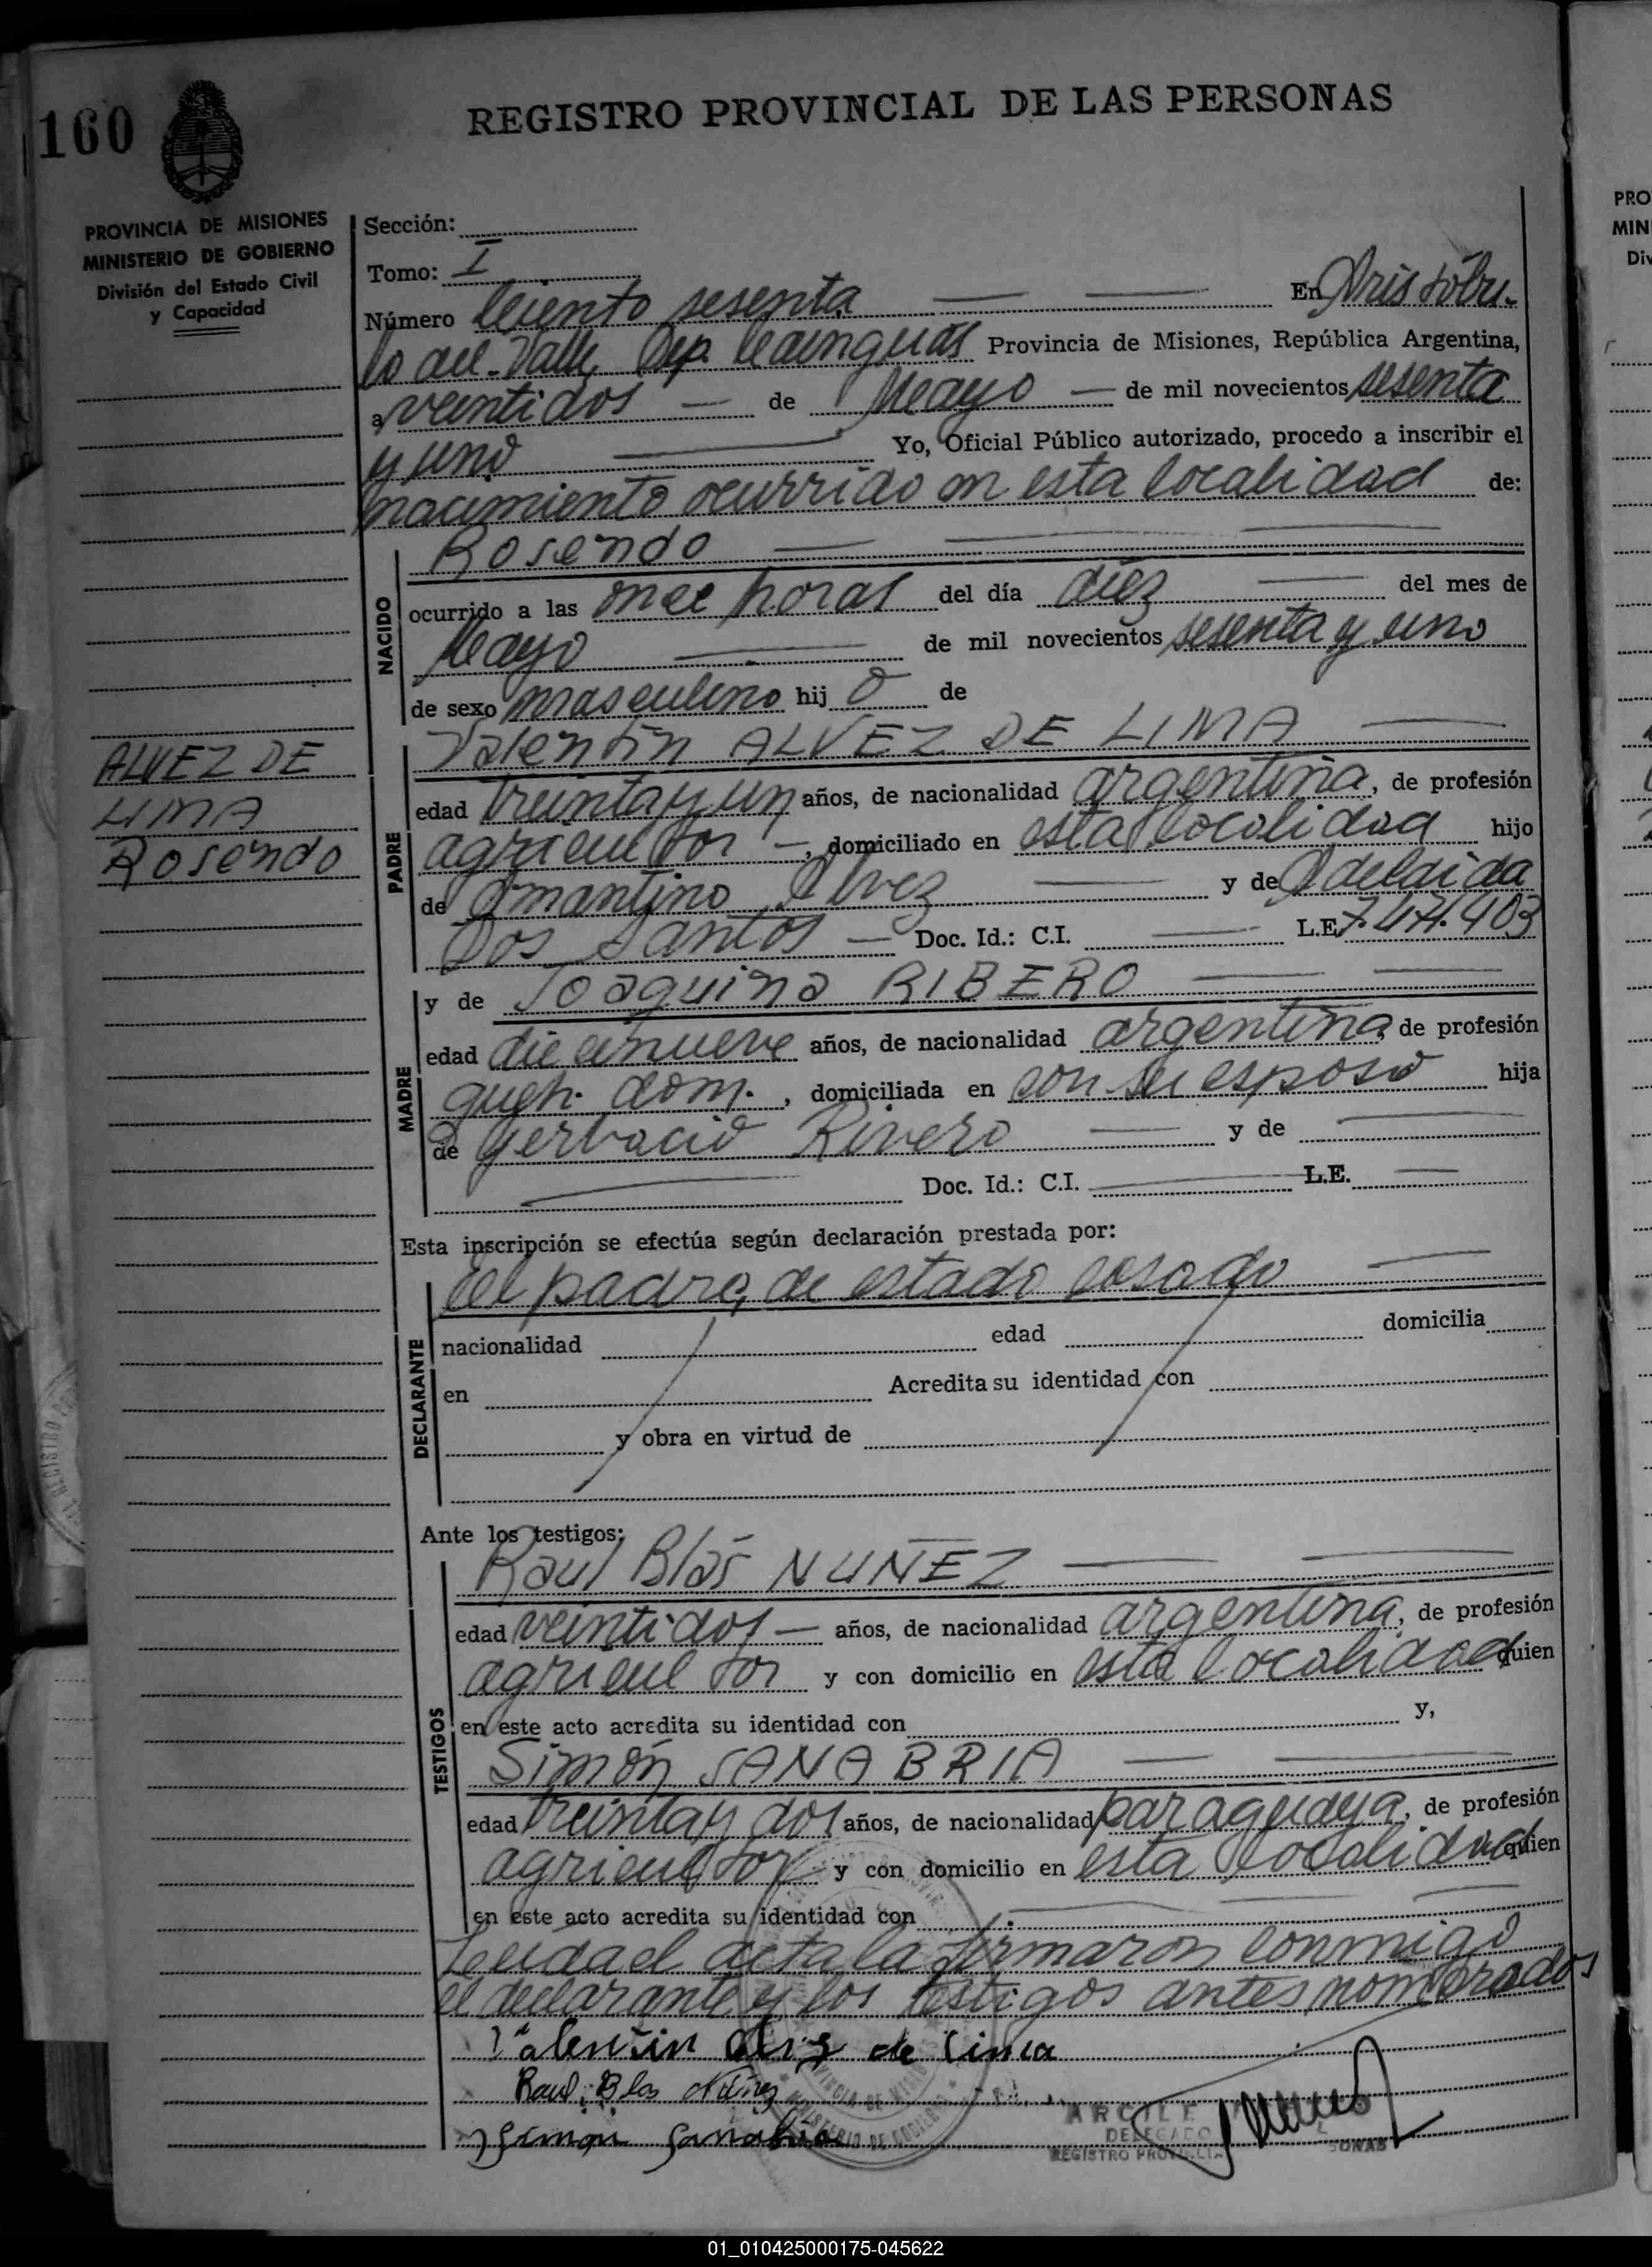 160
REGISTRO PROVINCIAL DE LAS PERSONAS
PROVINCIA DE MISIONES
MINISTERIO DE GOBIERNO
División del Estado Civil
y Capacidad
Sección:
Tomo: I
Número Ciento sesenta En Aristóbu-
lo del Valle Dep. Cainguás Provincia de Misiones, República Argentina,
a veintidos de Mayo de mil novecientos sesenta
y uno Yo, Oficial Público autorizado, procedo a inscribir el
nacimiento ocurrido en esta localidad de:
NACIDO
Rosendo
ocurrido a las once horas del día diez del mes de
Mayo de mil novecientos sesenta y uno
de sexo masculino hij o de
ALVEZ DE
LIMA
Rosendo
PADRE
Valentín ALVEZ DE LIMA
edad treinta y un años, de nacionalidad argentina, de profesión
agricultor, domiciliado en esta localidad hijo
de Amantino Alvez y de Adelaida
Dos Santos Doc. Id.: C.I. L.E. 7.474.403
MADRE
y de Joaquina RIBERO
edad diecinueve años, de nacionalidad argentina de profesión
queh. dom., domiciliada en con su esposo hija
de Gerbacio Rivero y de
Doc. Id.: C.I. L.E.
Esta inscripción se efectúa según declaración prestada por:
DECLARANTE
El padre, de estado casado
nacionalidad edad domicilia
en Acredita su identidad con
y obra en virtud de
Ante los testigos:
TESTIGOS
Raul Blás NUÑEZ
edad veintidos años, de nacionalidad argentina, de profesión
agricultor y con domicilio en esta localidad quien
en este acto acredita su identidad con y,
Simón SANABRIA
edad treinta y dos años, de nacionalidad paraguaya, de profesión
agricultor y con domicilio en esta localidad quien
en este acto acredita su identidad con
Leida el acta la firmaron conmigo
el declarante y los testigos antes nombrados
Valentin de Lima
Raul Blas Nuñez
Simon Sanabria
DELEGADO
REGISTRO
MINISTERIO DE GOBIERNO
01_010425000175-045622